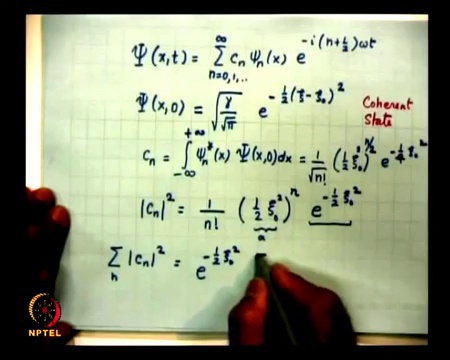 Ψ(x,t) = ∑_{n=0,1,..}^{∞} c_n ψ_n(x) e^{-i(n+½)ωt}
Ψ(x,0) = √(γ/√π) e^{-½(ξ-ξ₀)²} Coherent State
c_n = ∫_{-∞}^{+∞} ψ_n*(x) Ψ(x,0)dx = 1/√n! (½ξ₀²)^{n/2} e^{-¼ξ₀²}
|c_n|² = 1/n! (½ξ₀²)^n e^{-½ξ₀²}
a
∑_n |c_n|² = e^{-½ξ₀²}
NPTEL